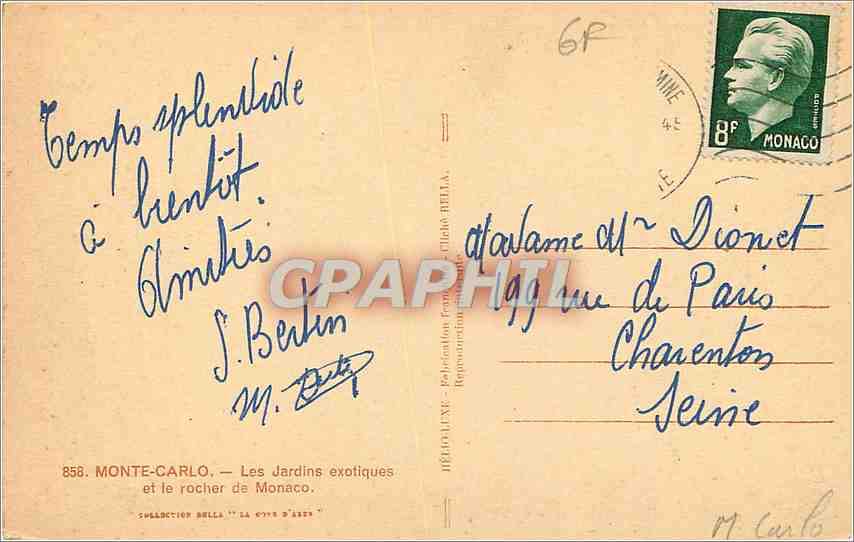 6F
MINE
45
8F MONACO
Temps splendide
à bientôt.
Amitiés
S. Bertin
M. Bertin
Madame Mr Dionet
199 rue de Paris
Charenton
Seine
CPARPHIL
HÉLIO-LUXE - Fabrication Française - Cliché BELLA.
Reproduction interdite
858. MONTE-CARLO. — Les Jardins exotiques
et le rocher de Monaco.
COLLECTION BELLA " LA COTE D'AZUR "
M. Carlo